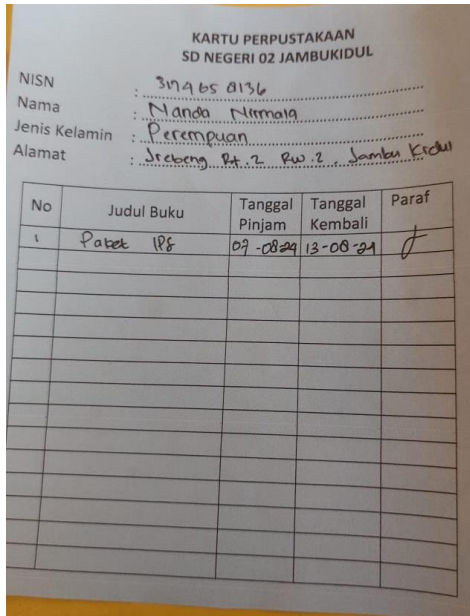 KARTU PERPUSTAKAAN
SD NEGERI 02 JAMBUKIDUL
NISN : 3179658136
Nama : Nanda Nirmala
Jenis Kelamin : Perempuan
Alamat : Srebeng Rt.2 Rw.2, Jambu Kidul
No Judul Buku Tanggal Pinjam Tanggal Kembali Paraf
1 Paket IPS 07-0824 13-08-24